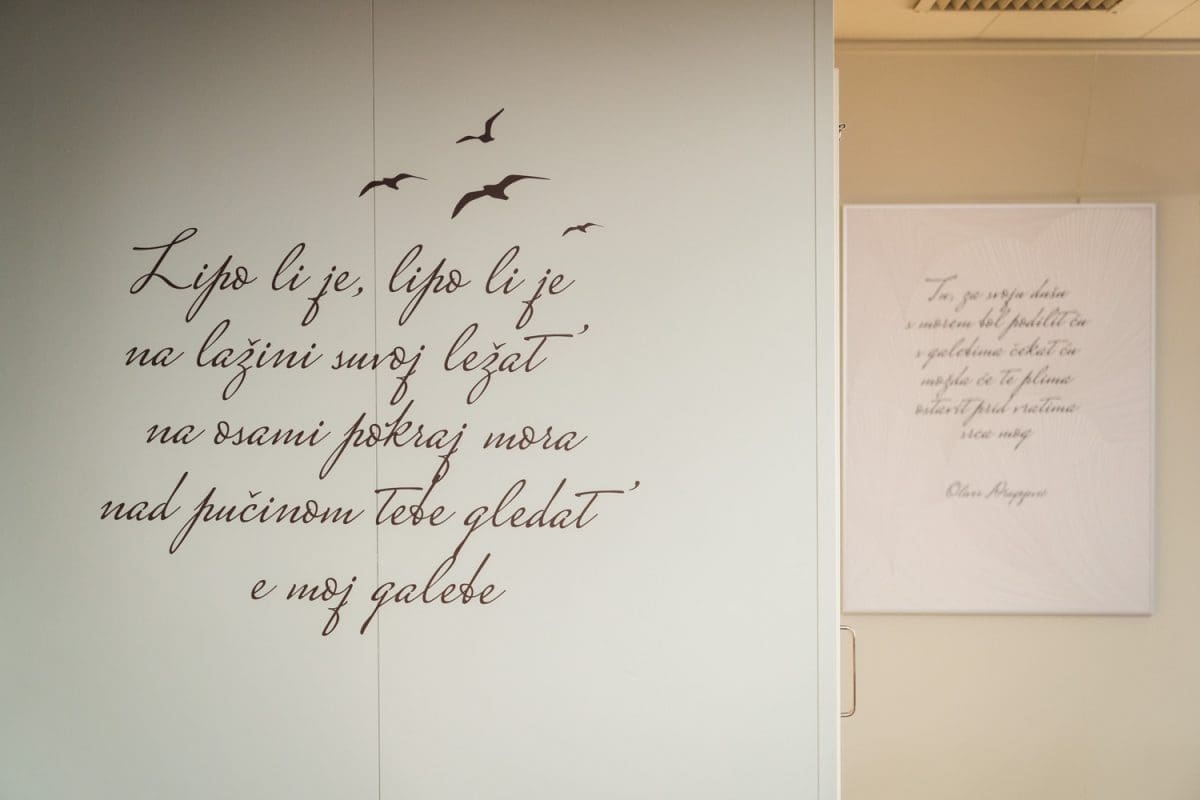 Lipo li je, lipo li je
na lažini suvoj ležat'
na osami pokraj mora
nad pučinom tebe gledat'
e moj galebe
Tu, za svoju dušu
s morem bol podilit ću
s galebima čekat ću
možda će te plima
ostavit prid vratima
srca mog
Oliver Dragojević